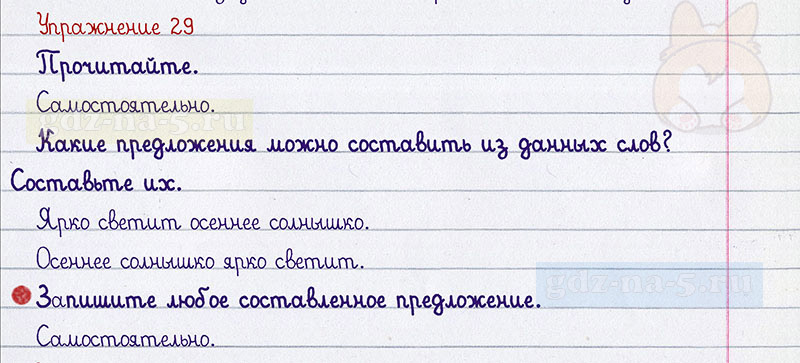 Упражнение 29
Прочитайте.
Самостоятельно.
gdz-na-5.ru
Какие предложения можно составить из данных слов?
Составьте их.
Ярко светит осеннее солнышко.
Осеннее солнышко ярко светит.
gdz-na-5.ru
Запишите любое составленное предложение.
Самостоятельно.